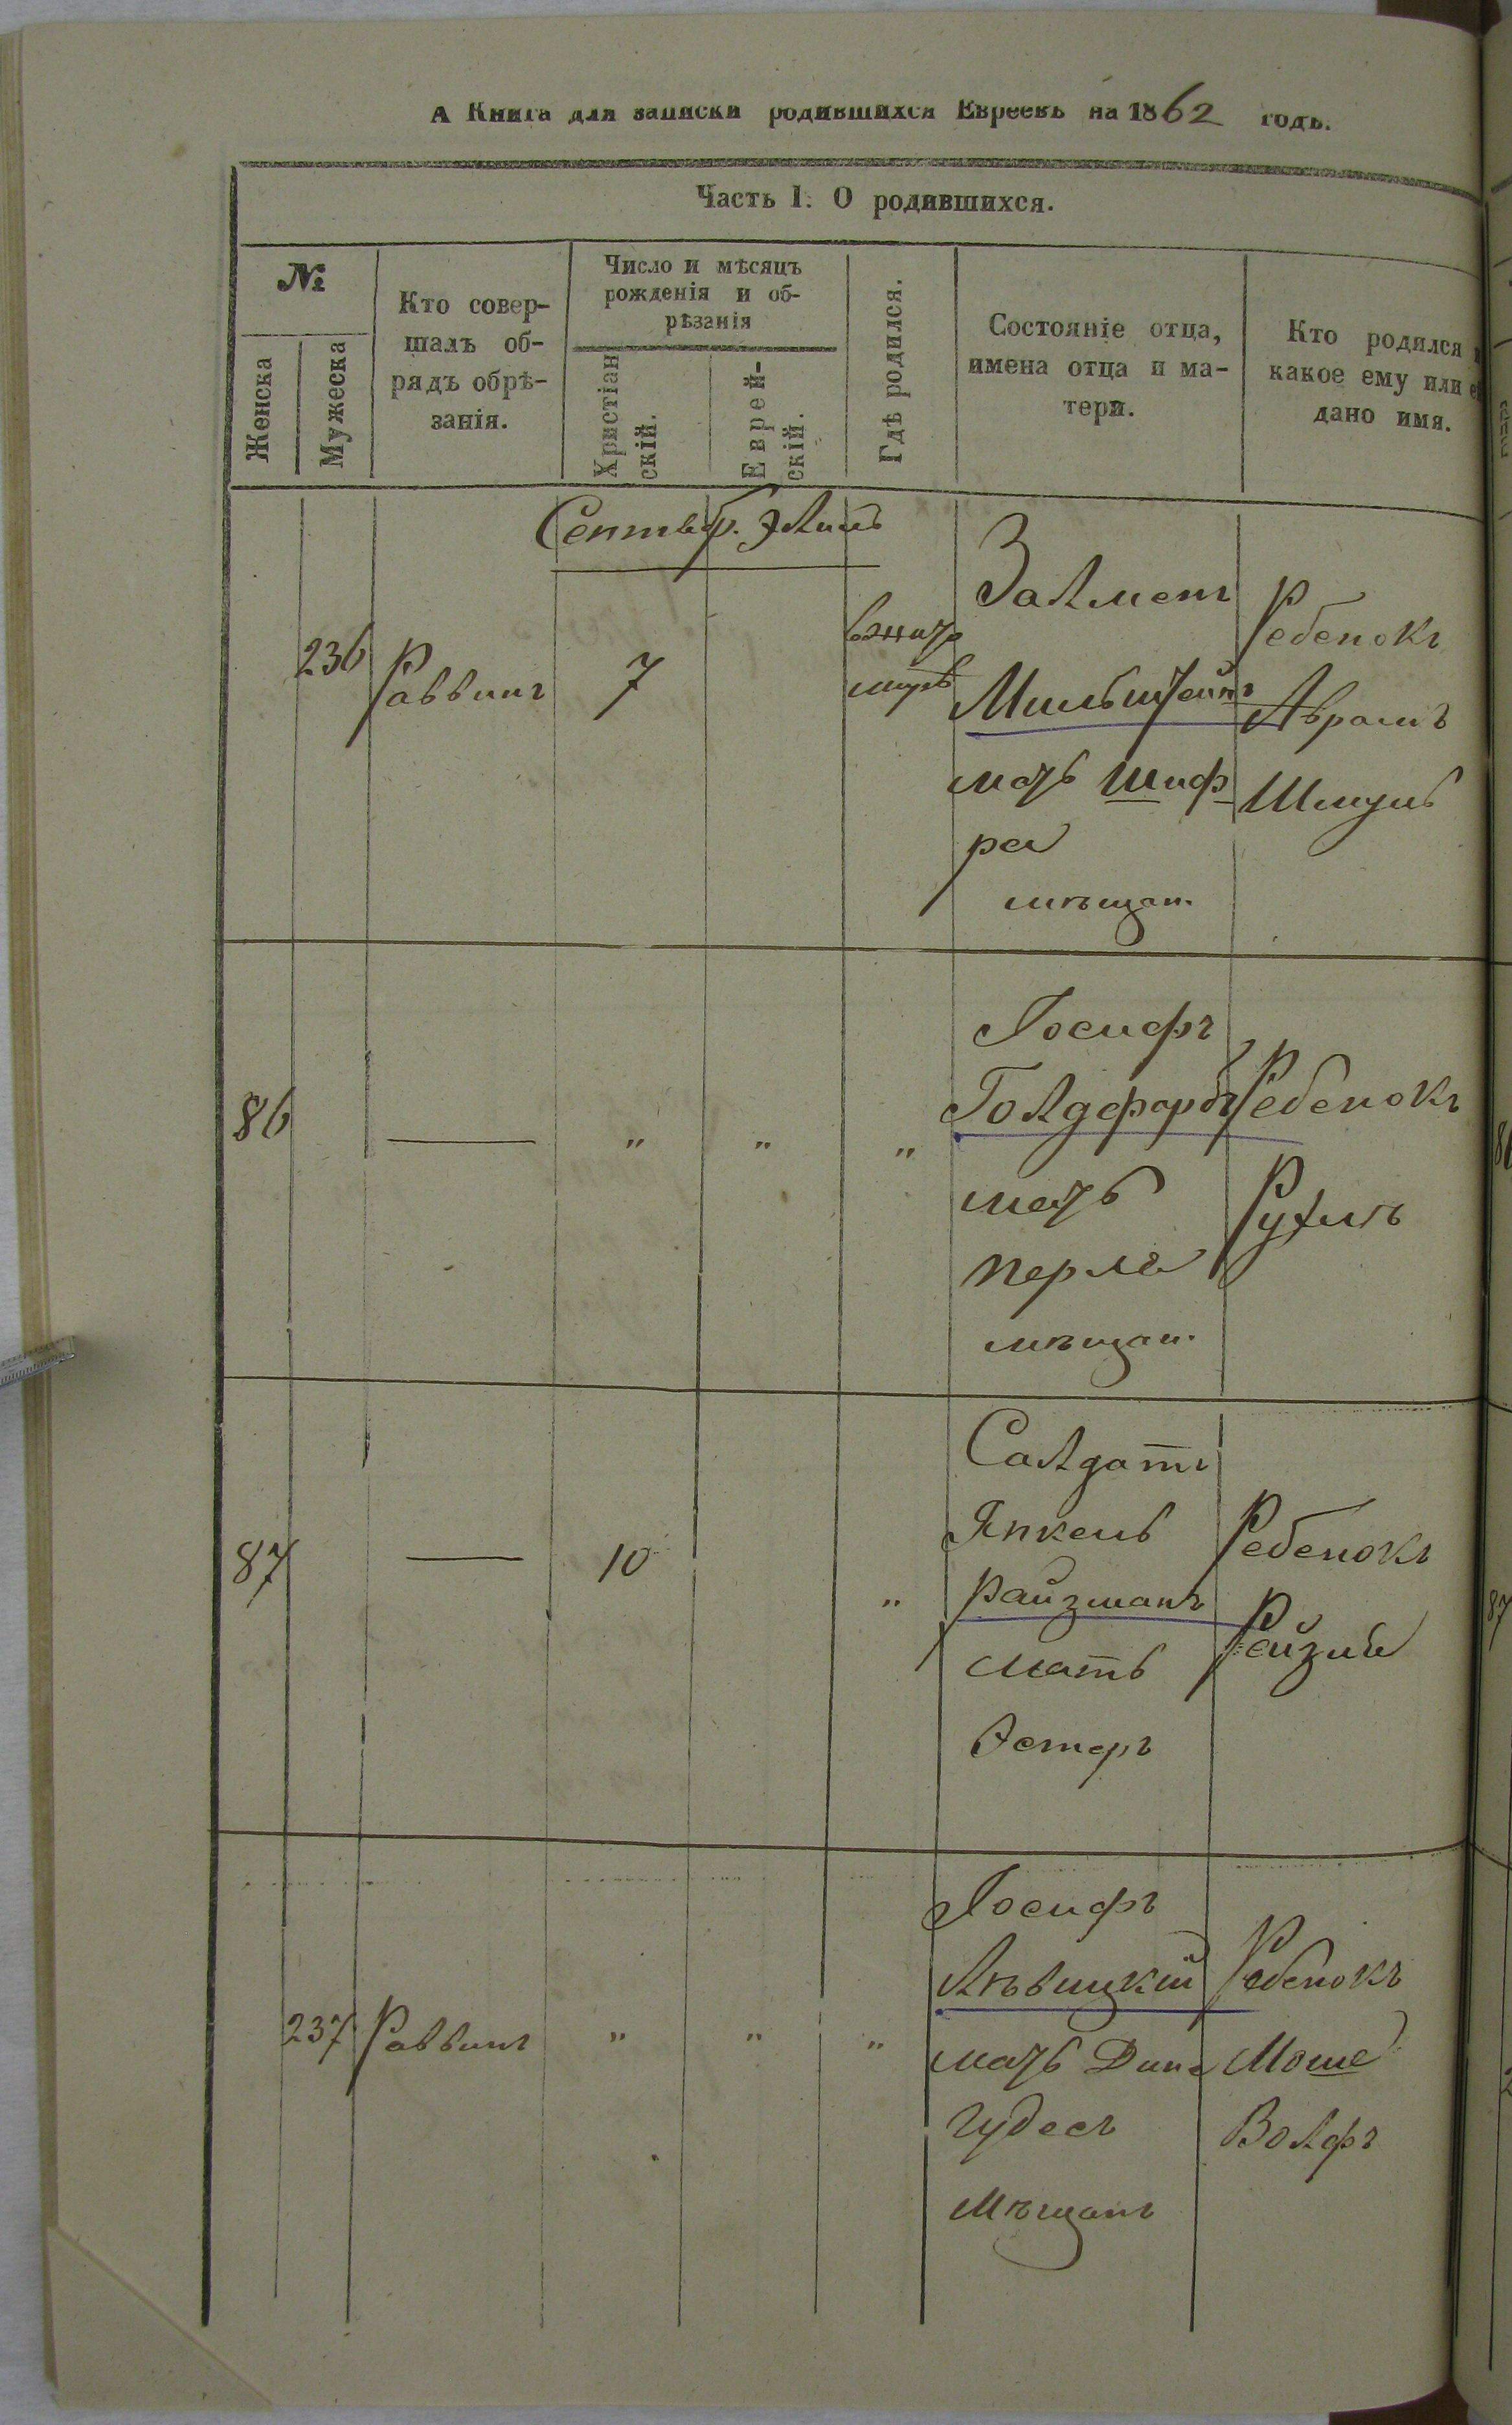 А Книга для записки родившихся Евреевъ на 1862 годъ.
Часть I. О родившихся.
№
Женска
Мужеска
Кто совер-
шалъ об-
рядъ обрѣ-
занія.
Число и мѣсяцъ
рожденія и об-
рѣзанія
Христіан
скій.
Еврей-
скій.
Гдѣ родился.
Состояніе отца,
имена отца и ма-
тери.
Кто родился и
какое ему или ей
дано имя.
Сентябр. Элиль
236
Раввинъ
7
Залменъ
Мильштейнъ
мать Шиф
ра
мѣщан.
Ребенокъ
Аврамъ
Шмуль
86
—
"
"
"
Іосифъ
Голдфарбъ
мать
Перля
мѣщан.
Ребенокъ
Рухлѣ
87
—
10
"
Салдатъ
Янкель
Райзманъ
мать
Эстеръ
Ребенокъ
Рейзля
237
Раввинъ
"
"
"
Іосифъ
Лѣвицкій
мать Дина
Гудесъ
Мѣщанъ
Ребенокъ
Моше
Волфъ